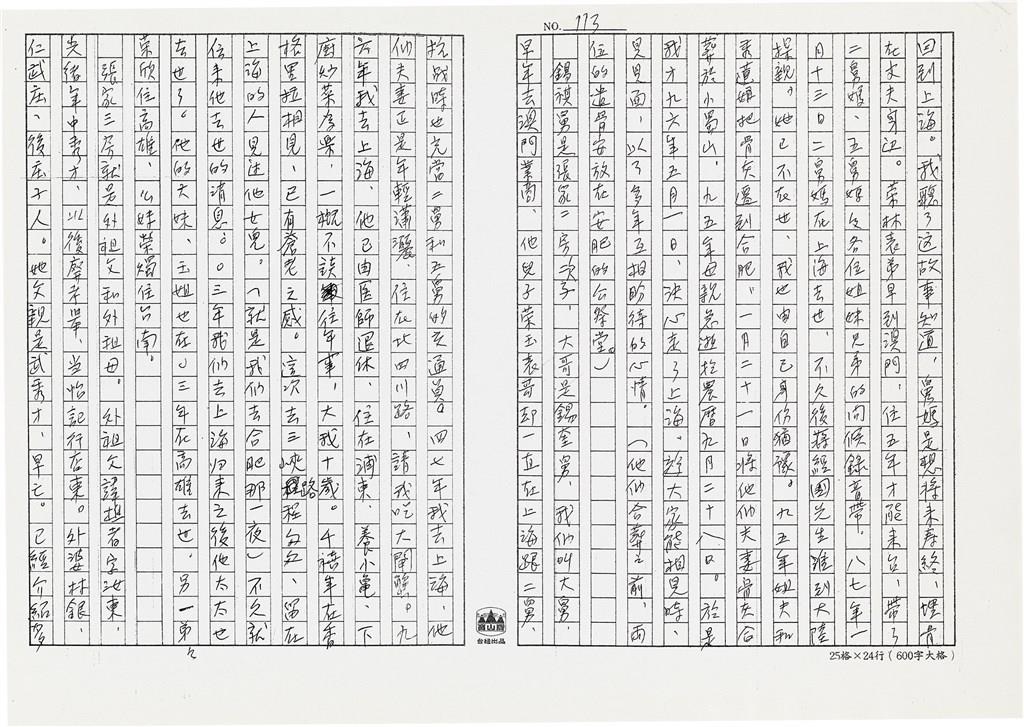 NO. 113
回到上海。我聽了这故事知道，舅媽是想將来寿終，埋骨
在丈夫身边。荣林表弟早到澳門，住五年才能来台，帶了
二舅媽、五舅媽及各位姐妹兄弟的问候錄音帶。八七年一
月十三日二舅媽在上海去世，不久後蔣經國先生准到大陸
探親。她已不在世，我也由自己身份猶豫。九五年姐夫和
素蕙娘把骨灸遷到合肥，一月二十一日將他们夫妻骨灰合
葬於小蜀山。九五年母親急逝於農曆九月二十八日。於是
我才九六年五月一日，決心走了上海。趁大家能相見時，
見見面，以了多年互相盼待的心情。（他们合葬之前，两
位的遺骨安放在安肥的公祭堂。）
錫祺舅是張家二房次子，大哥是錫奎舅，我们叫大舅，
早年去澳門業商，他兒子荣玉表哥却一直在上海跟二舅，
抗战時也充當二舅和五舅的交通員。四七年我去上海，他
们夫妻正是年輕瀟灑，住在北四川路，請我吃大閘蟹。九
六年我去上海，他已由医師退休，住在浦東，養小亀，下
廚炒菜享樂，一概不談往年事，大我十歲。千禧年在香
格里拉相見，已有蒼老之感。這次去三峽路程勾勾，留在
上海的人見过他女兒。（就是我们去合肥那一夜）不久就
傳来他去世的消息。○三年我们去上海归来之後他太太也
去世了。他的大妹、玉姐也在○三年在高雄去世，另一弟弟
荣欣住高雄，么妹荣嫻住台南。
張家三房就是外祖父和外祖母。外祖父諱棋者字汝東，
光緒年中秀才，以後廢考舉，当怡記行在東。外婆林銀，
仁武庄、後庄子人。她父親是武秀才，早亡。已經介紹多
高山牌
台紙出品
25格×24行（600字大格）